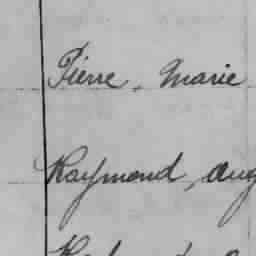 Pierre, Marie
Raymond, Aug